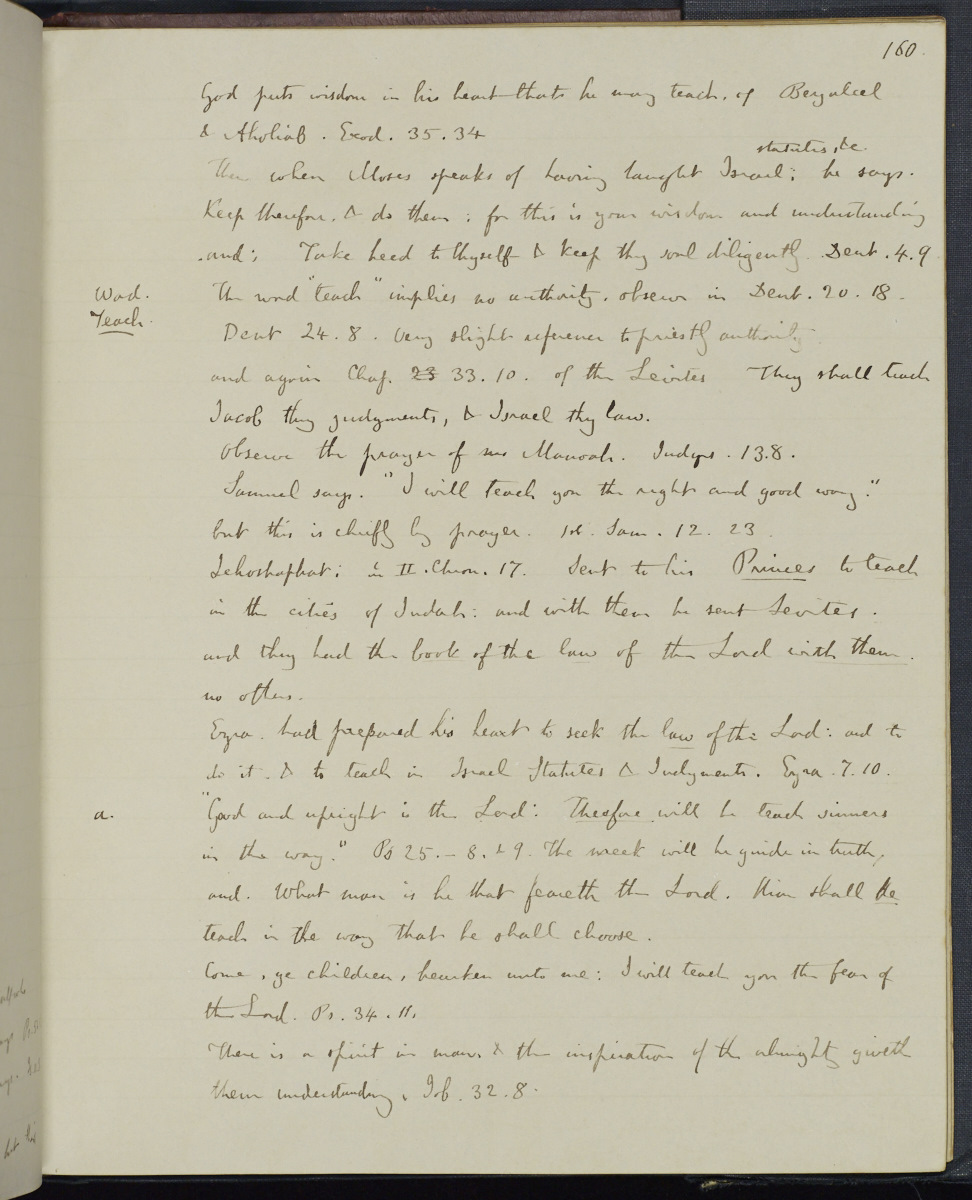 160.
God puts wisdom in his heart that he may teach. of Bezaleel
& Aholiab. Exod. 35.34
statutes, &c.
Then when Moses speaks of having taught Israel; he says.
Keep therefore. & do them; for this is your wisdom and understanding
and; Take heed to thyself & keep thy soul diligently. Deut. 4. 9
Word. The word "teach" implies no authority. observe in Deut. 20. 18.
Teach.
Deut 24. 8. Very slight reference to priestly authority.
and again Chap. 23 33. 10. of the Levites They shall teach
Jacob thy judgments, & Israel thy law.
Observe the prayer of Manoah. Judges. 13.8.
Samuel says. "I will teach you the right and good way."
but this is chiefly by prayer. 1st. Sam. 12. 23
Jehoshaphat; in II. Chron. 17. Sent to his Princes to teach
in the cities of Judah: and with them he sent Levites.
and they had the book of the law of the Lord with them.
no others.
Ezra. had prepared his heart to seek the law of the Lord: and to
do it. & to teach in Israel Statutes & Judgments. Ezra. 7. 10.
a. "Good and upright is the Lord: Therefore will he teach sinners
in the way." Ps 25. – 8. & 9. The meek will he guide in truth,
and. What man is he that feareth the Lord. Him shall He
teach in the way that he shall choose.
Come, ye children, hearken unto me: I will teach you the fear of
the Lord. Ps. 34. 11.
There is a spirit in man. & the inspiration of the almighty giveth
them understanding. Job. 32. 8.